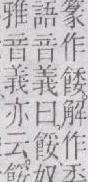 篆作餧解作
語音義曰餒奴
雅音義亦云餒